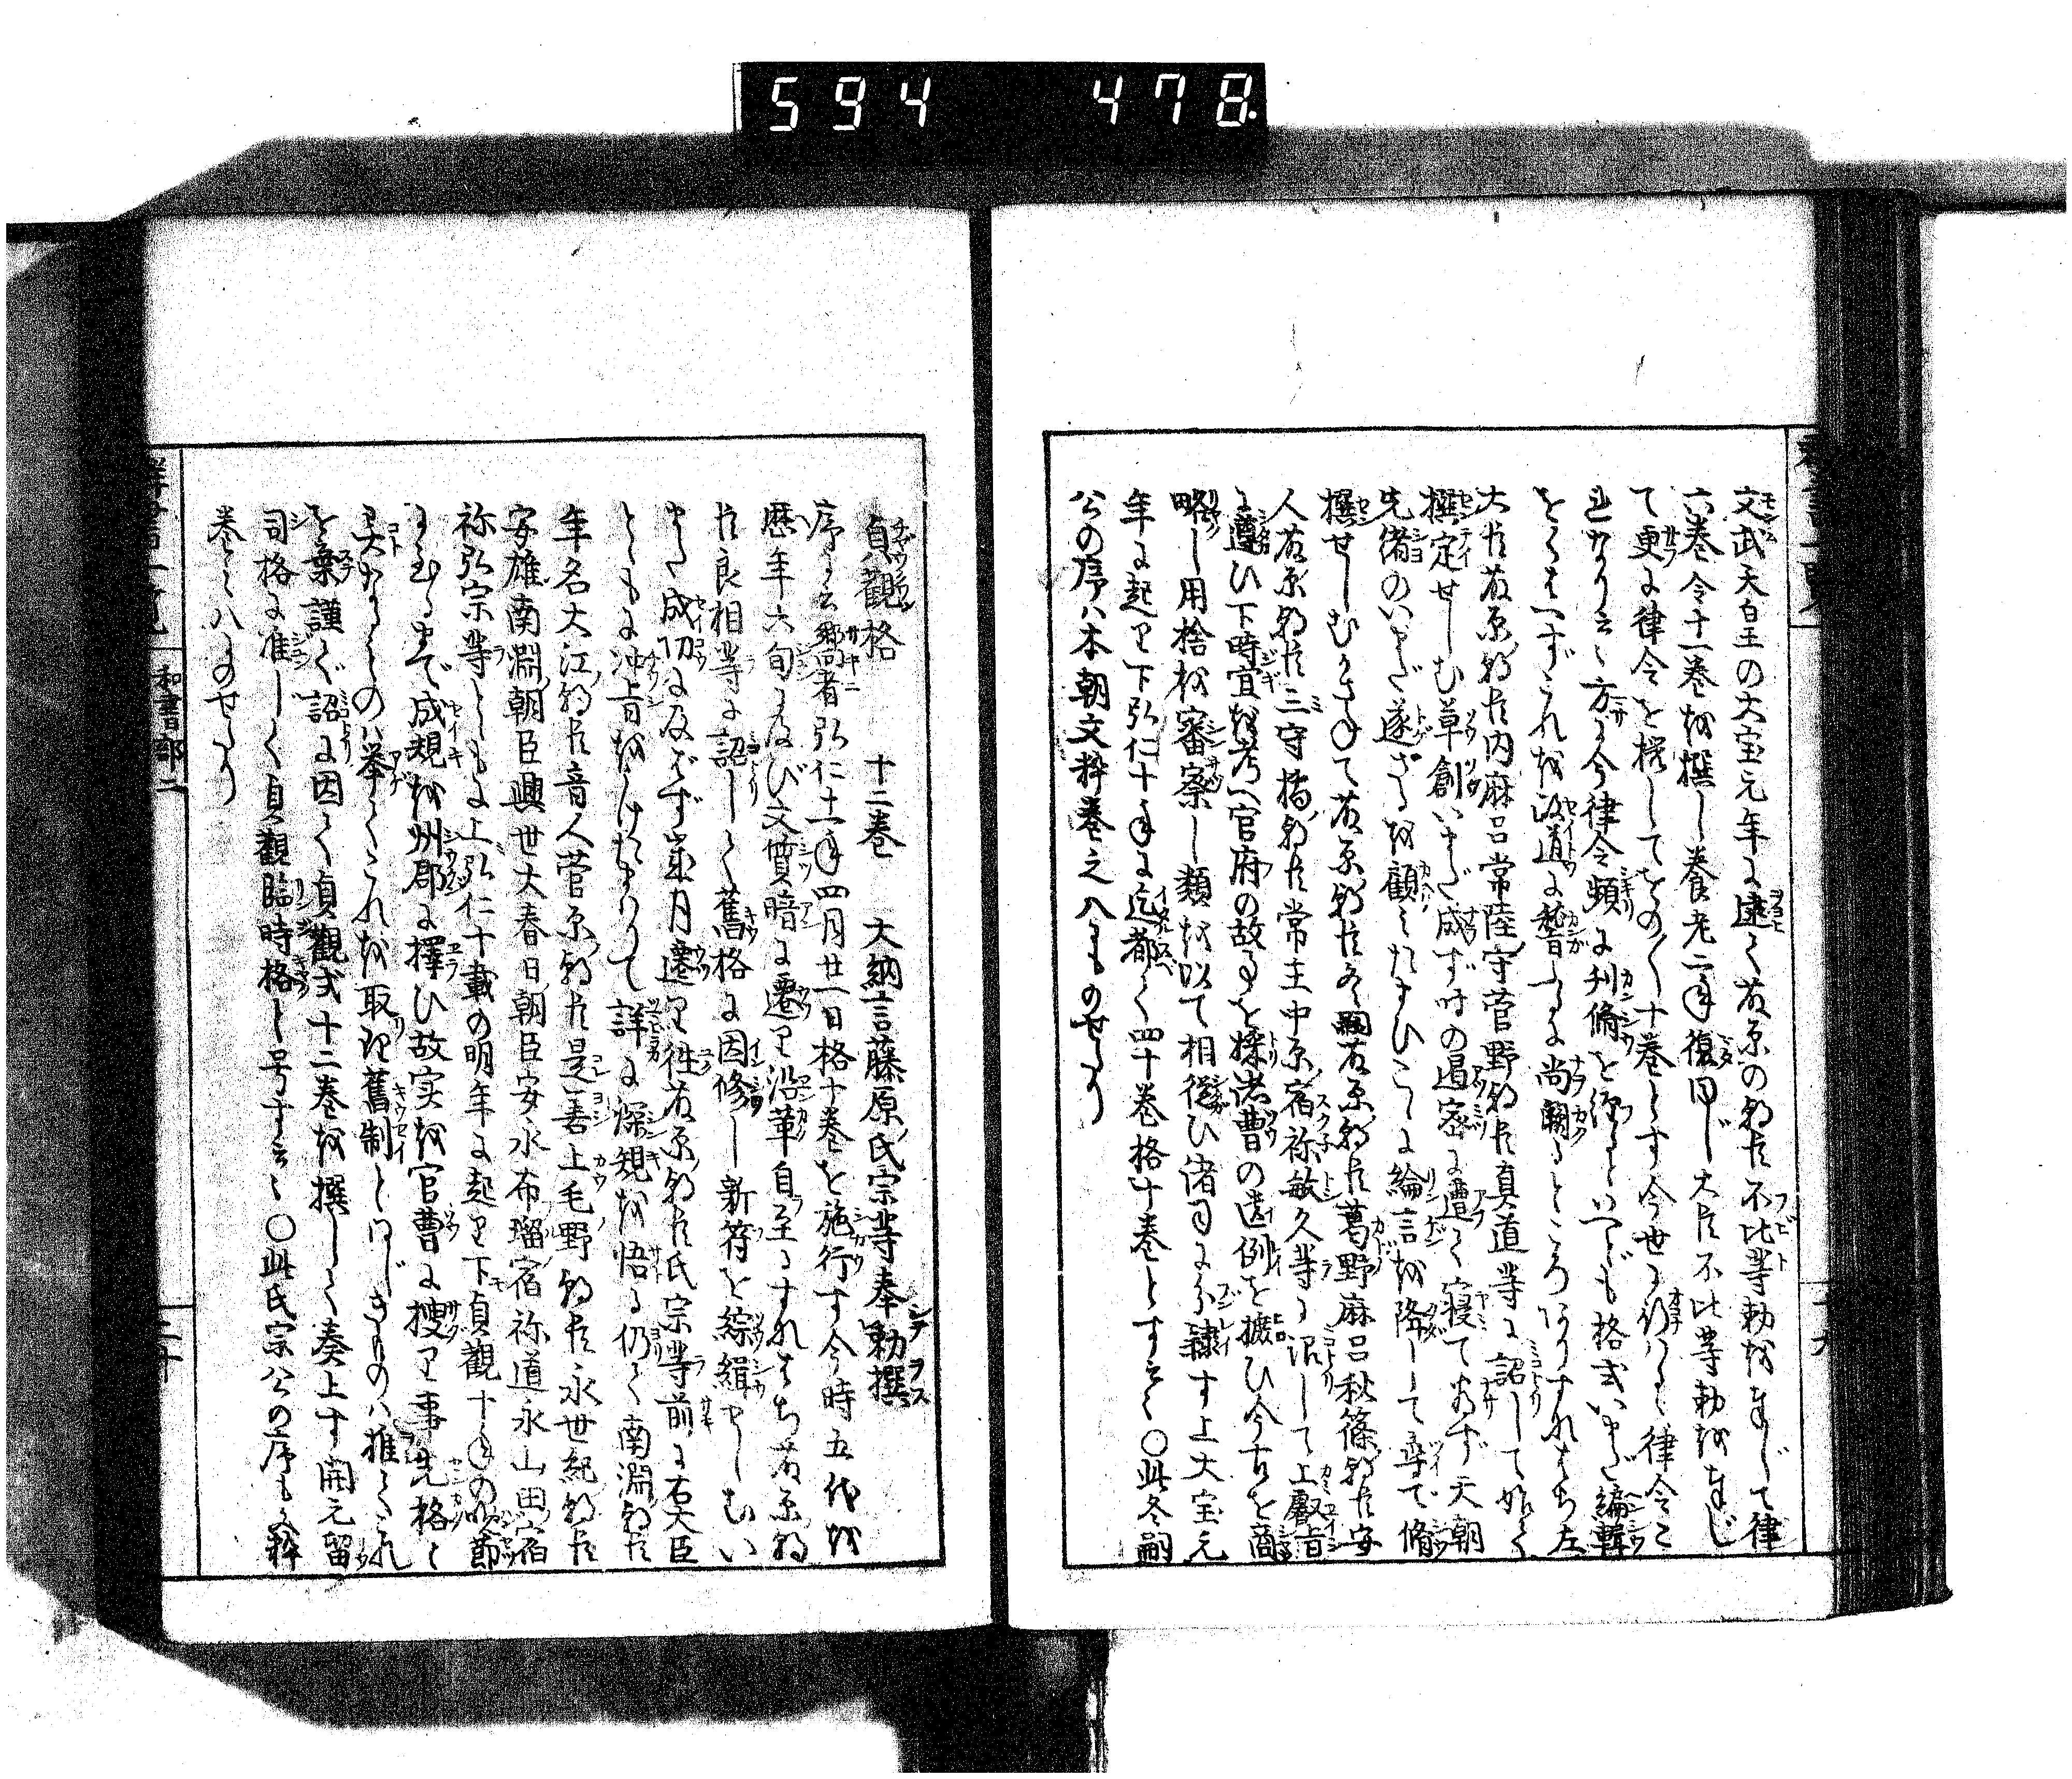 594 478
文武天皇の大宝元年に逮て藤原の朝臣不比等勅を奉じて律
六巻令十一巻を撰し養老二年復同じ大臣不比等勅を奉じ
て更に律令を撰してをの〱十巻とす今世に行はるゝ律令こ
れなり云々方に今律令頻に刊脩を経といへども格式いまだ編輯
をくはへずこれを政道に稽ふるに尚闕るところありすなはち左
大臣藤原朝臣内麻呂常陸守菅野朝臣真道等に詔して始て
撰定せしむ草創いまだ成ず時の遏密に遭て寝て為ず天朝
先緒のいまだ遂ざるを顧みたまひこゝに綸言を降して尋で脩
撰せしむかさねて藤原朝臣冬嗣藤原朝臣葛野麻呂秋篠朝臣安
人藤原朝臣三守橘朝臣常主中原宿祢敏久等に詔して上叡旨
に遵ひ下時宜を考へ官府の故事を採諸曹の遺例を摭ひ今古を商
略し用捨を審察し類を以て相従ひ諸司に分隷す上大宝元
年に起り下弘仁十年に迄都て四十巻格十巻とす云々〇此冬嗣
公の序は本朝文粋巻之八にものせたり
貞観格 十二巻 大納言藤原氏宗等奉勅撰
序に云曩者弘仁十一年四月廿一日格十巻を施行す今時五代を
歴年六旬に及び文質暗に遷り沿革自至るすなはち藤原朝
臣良相等に詔して舊格に因修し新符を綜緝せしむい
まだ成功に及ばず歳月遷り往藤原朝臣氏宗等前に右大臣
とともに冲旨をうけたまはりて詳に深規を悟る仍て南淵朝臣
年名大江朝臣音人菅原朝臣是善上毛野朝臣永世紀朝臣
安雄南淵朝臣興世大春日朝臣安永布瑠宿祢道永山田宿
祢弘宗等とともに上弘仁十載の明年に起り下貞観十年の晩節
にいたるまで成規を州郡に擇ひ故実を官曹に捜り事先格と
異なるものハ挙てこれを取理舊制と同じきものハ推てこれ
を棄謹で詔に因て貞観式十二巻を撰して奏上す開元留
司格に准して貞観臨時格と号す云々〇此氏宗公の序も文粋
巻之八にのせたり
和書部二
二十